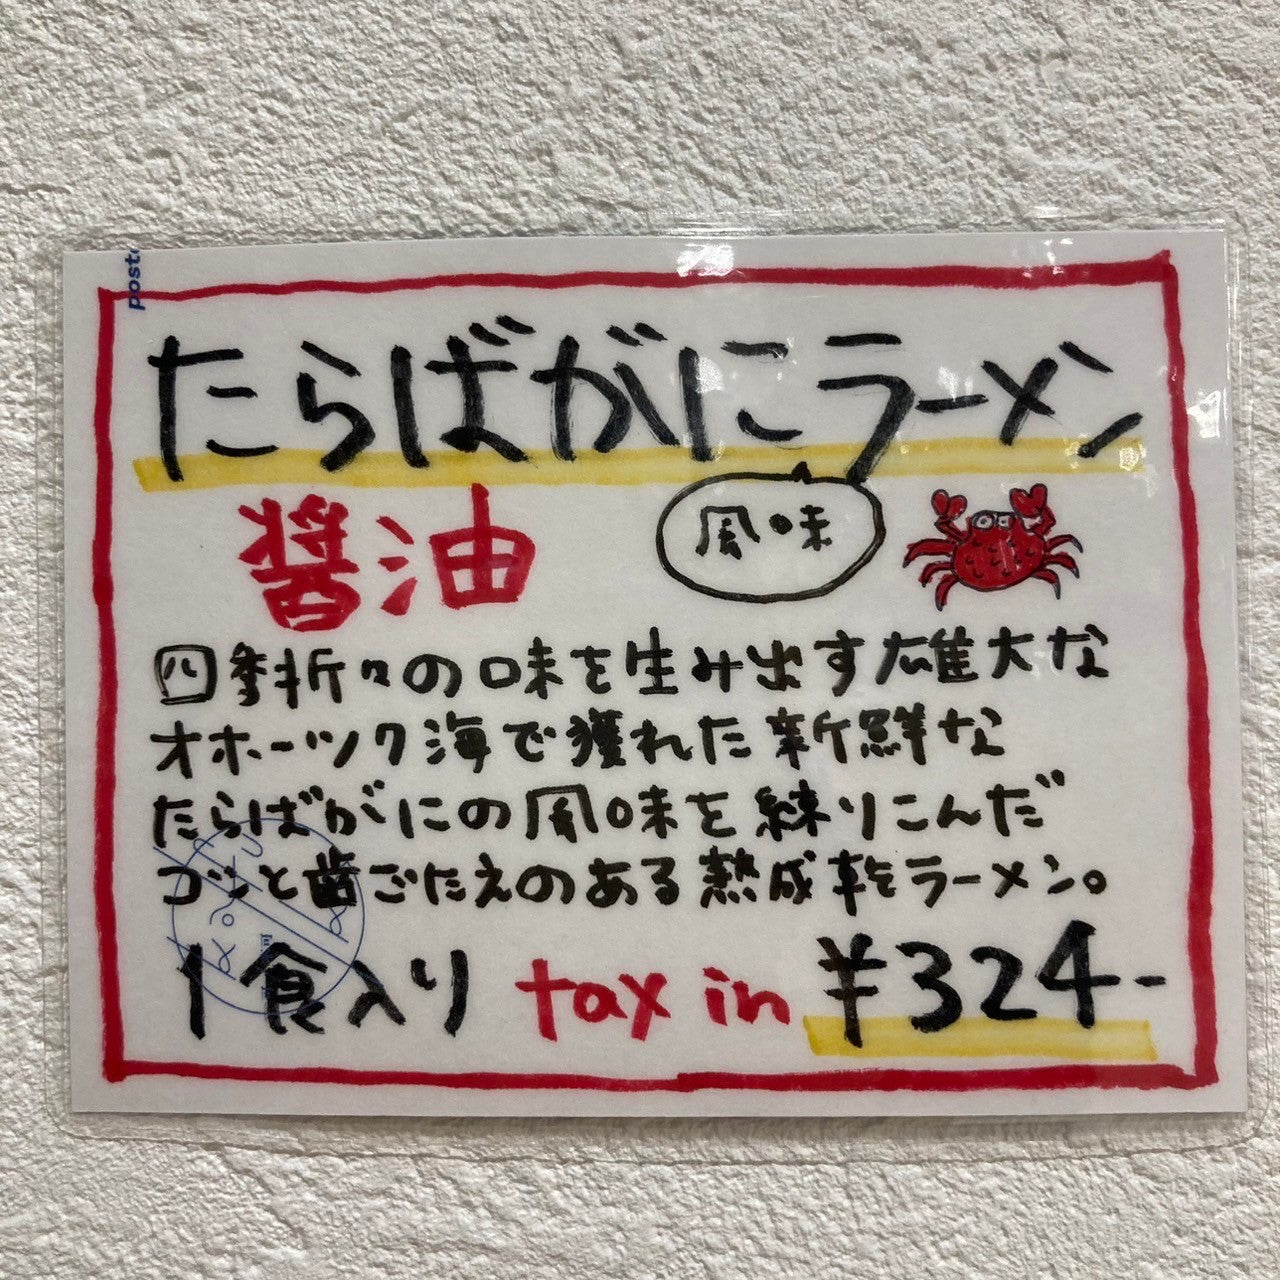 poste
たらばがにラーメン
醤油 風味
四季折々の味を生み出す雄大な
オホーツク海で獲れた新鮮な
たらばがにの風味を練りこんだ
コシと歯ごたえのある熟成乾ラーメン。
1食入り tax in ¥324-